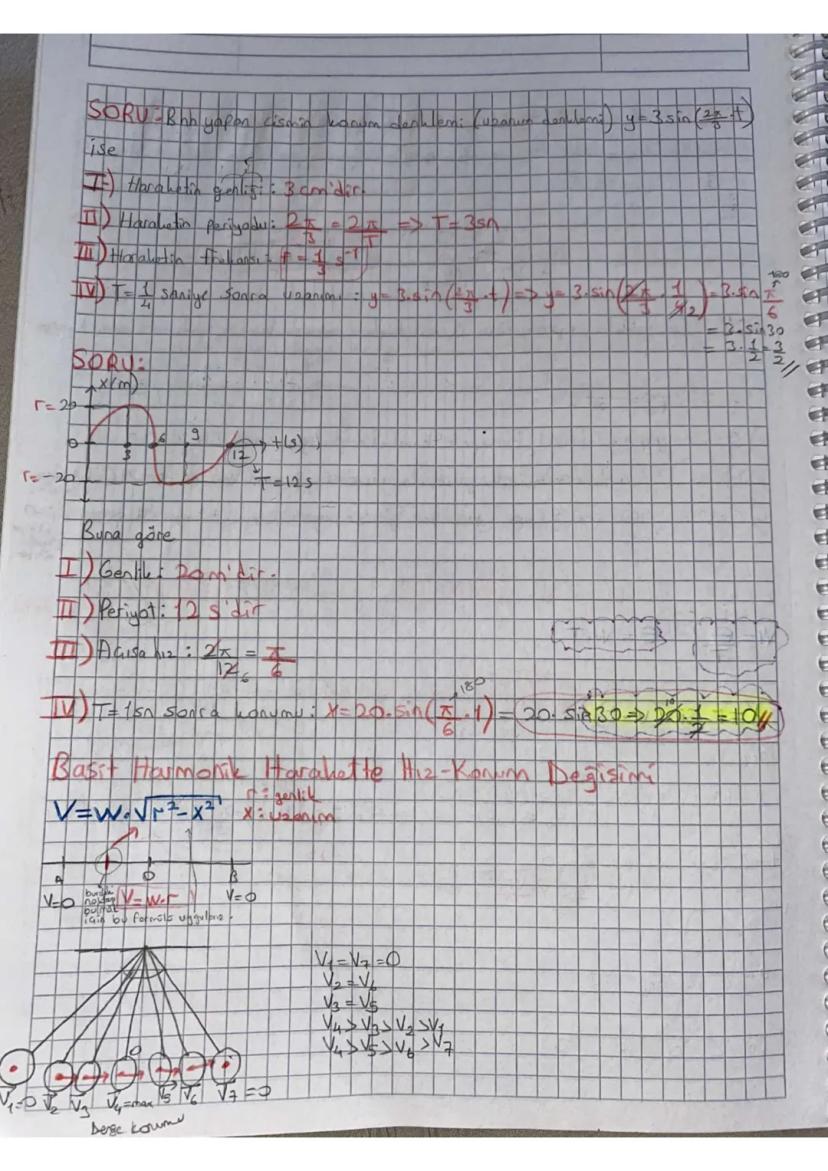 SORU: Bhh yapan cismin konum denklemi (uzanım denklemi) y=3 sin(2π/3 . t)
ise
I-) Harahetin genliği: 3 cm'dir.
II) Harahetin periyodu: 2π/3 = 2π/T => T=3sn
III) Harahetin frekansı: f = 1/3 s⁻¹
IV) T=1/4 saniye sonra uzanımı: y=3.sin(2π/3 . t) => y= 3.sin(2π/3 . 1/4 2) = 3.sin π/6 180
= 3.sin30
= 3.1/2 = 3/2 //
SORU:
x(m)
r=20
0 3 6 9 12 t(s)
r=-20
T=12s
Buna göre
I) Genlik: 20m'dir.
II) Periyot: 12 s'dir
III) Açısa hız: 2π/12 6 = π/6
IV) T=1sn sonra konumu: x=20.sin(π/6 . 1) = 20. sin30 => 20 . 1/2 = 10 //
180
10
Basit Harmonik Harahette Hız-Konum Değişimi
V=W.√r²-x²
r: genlik
x: uzanım
A O B
V=0 V=w.r V=0
için bu formülü uygularız.
V1=V7=0
V2=V6
V3=V5
V4>V3>V2>V1
V4>V5>V6>V7
O
V1=0 V2 V3 V4=max V5 V6 V7=0
Denge konumu